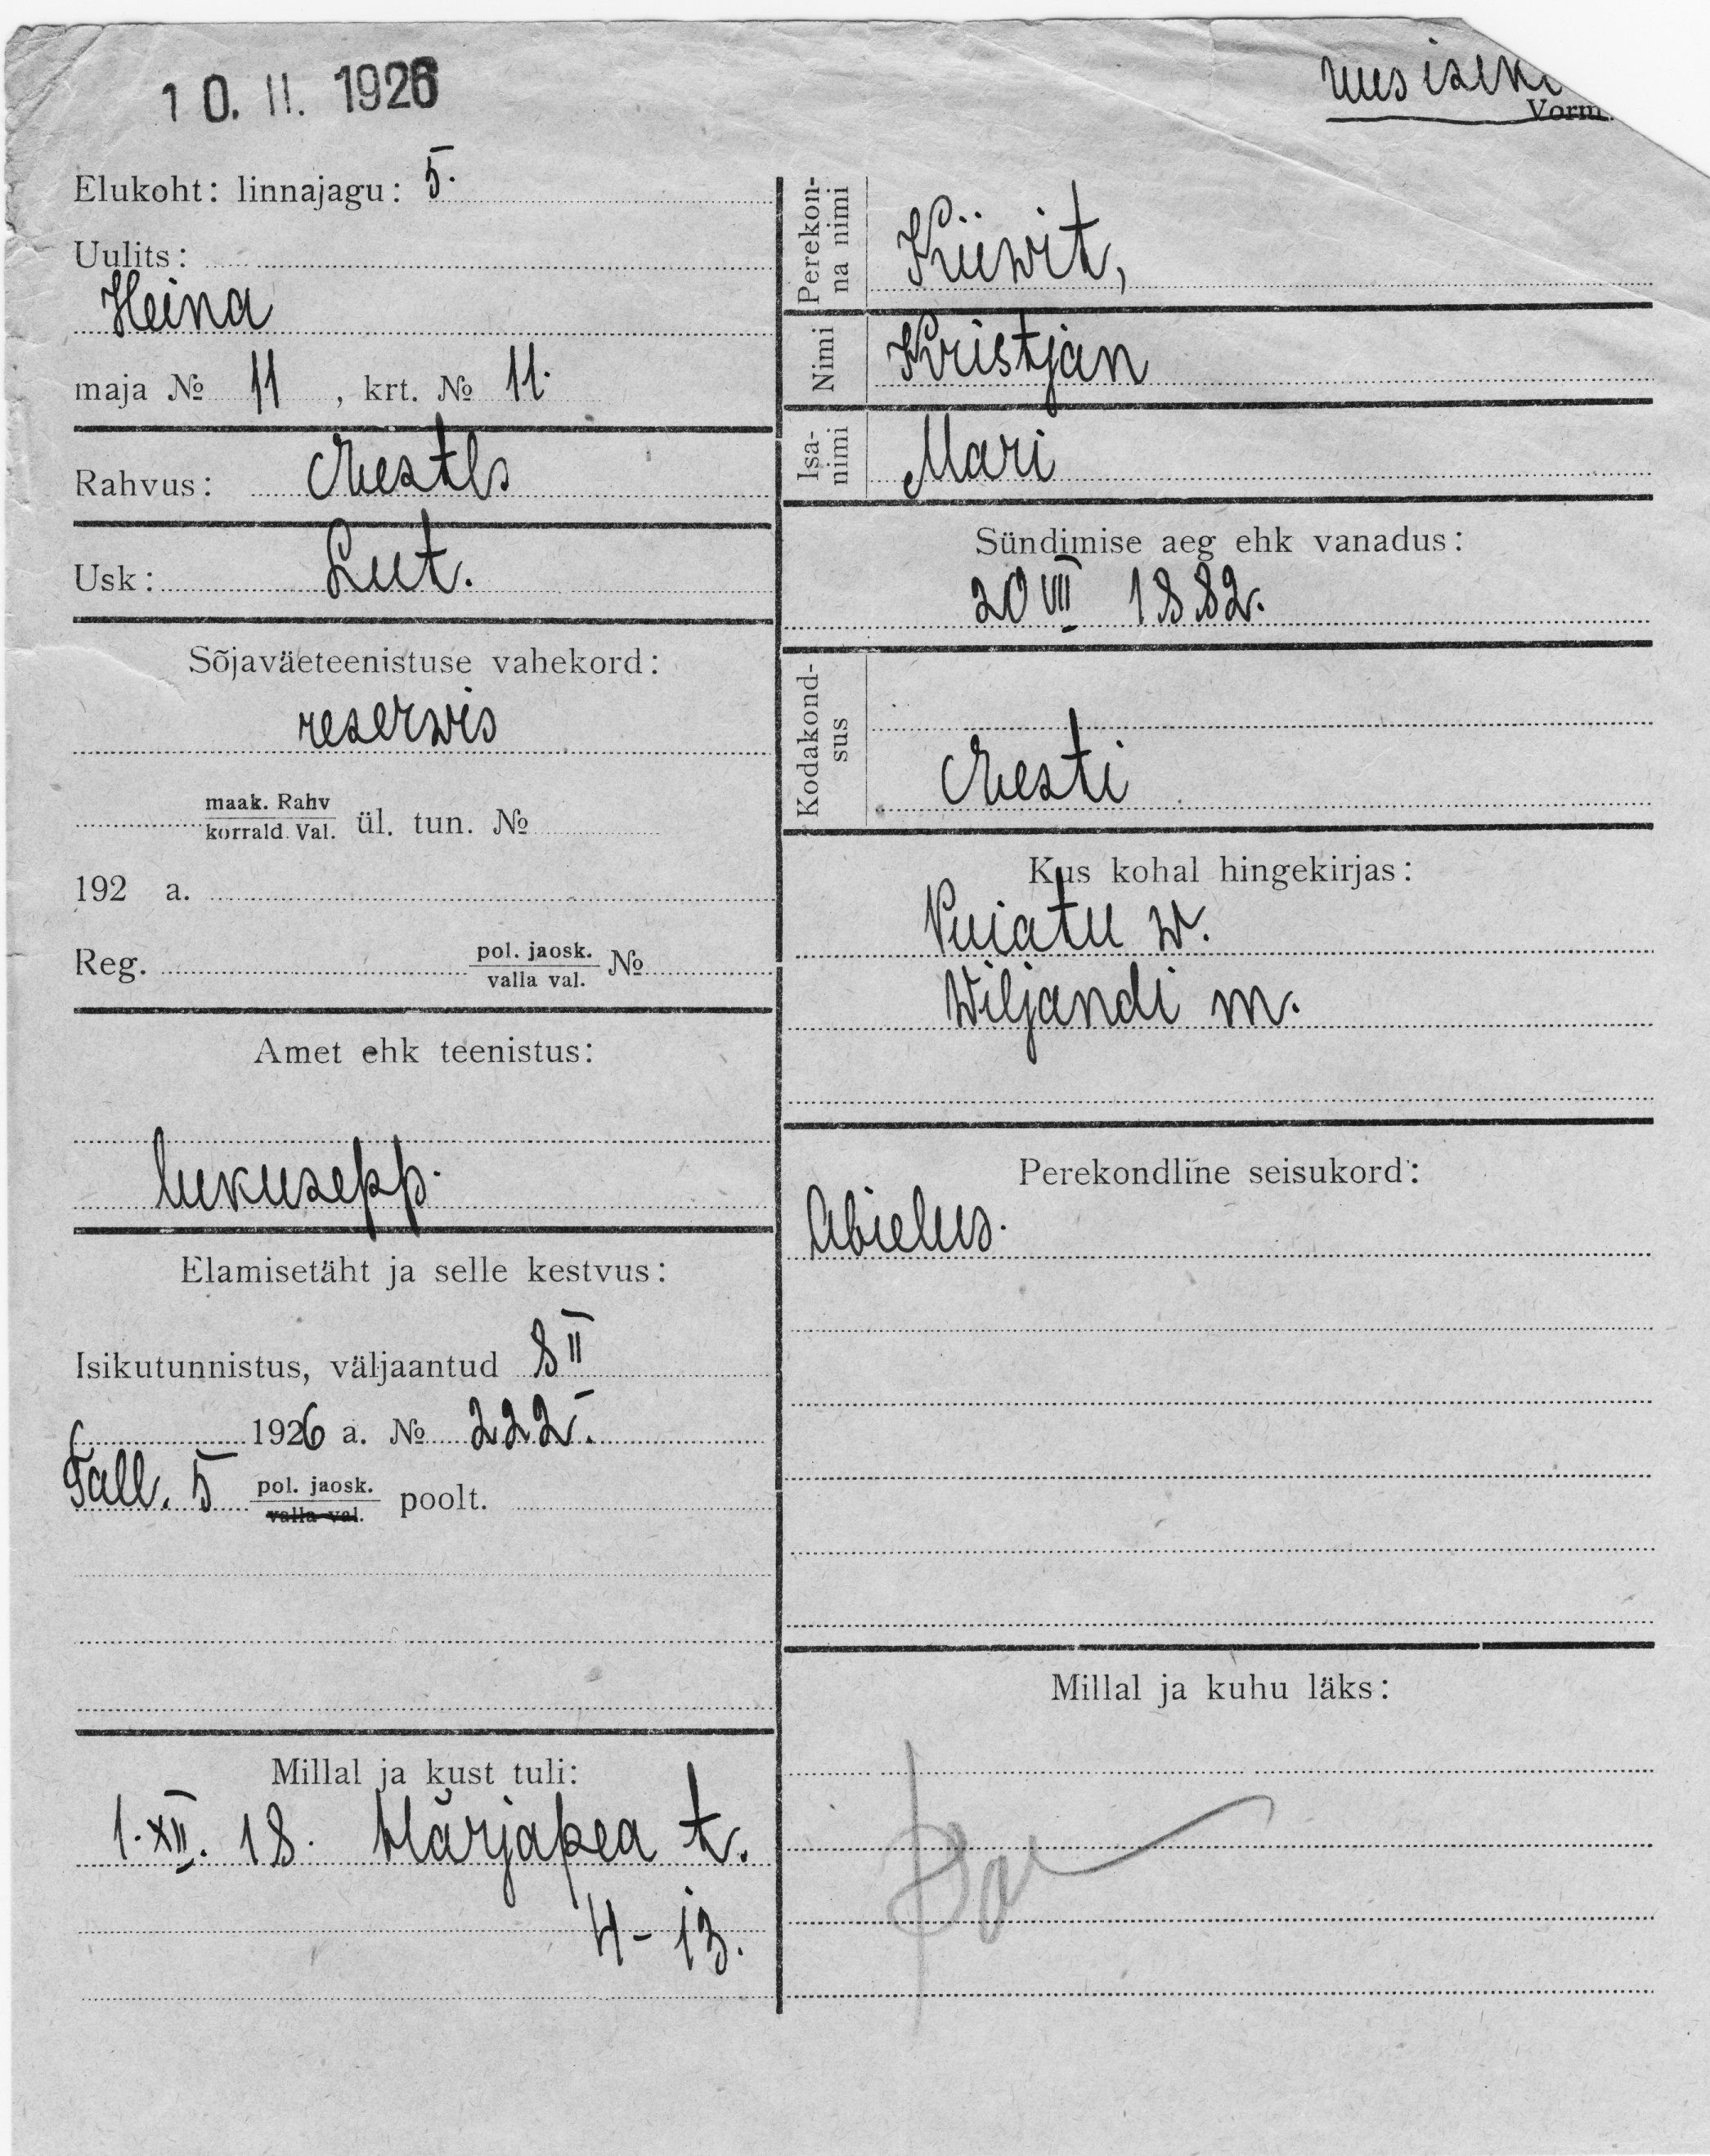 10. II. 1926
uus isiku
Vorm.
Elukoht: linnajagu: 5.
Uulits:
Heina
maja № 11, krt. № 11.
Rahvus: Eestl.
Usk: Lut.
Sõjaväeteenistuse vahekord:
reserwis
maak. Rahv
korrald. Val. ül. tun. №
192 a.
Reg. pol. jaosk.
valla val. №
Amet ehk teenistus:
lukusepp.
Elamisetäht ja selle kestvus:
Isikutunnistus, väljaantud 8 II
1926 a. № 222.
Tall. 5 pol. jaosk.
valla val. poolt.
Millal ja kust tuli:
1. XII. 18. Härjapea t.
4-13.
Perekon-
na nimi
Kiiwit,
Nimi
Kristjan
Isa-
nimi
Mari
Sündimise aeg ehk vanadus:
20 VII 1882.
Kodakond-
sus
Eesti
Kus kohal hingekirjas:
Puiatu w.
Wiljandi m.
Perekondline seisukord:
Abielus.
Millal ja kuhu läks: